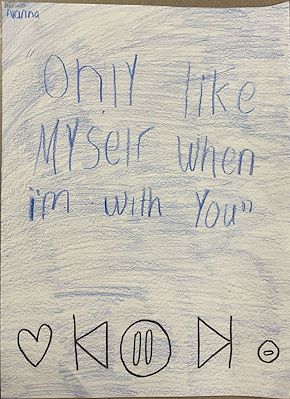 "Only like
Myself when
i'm with You"